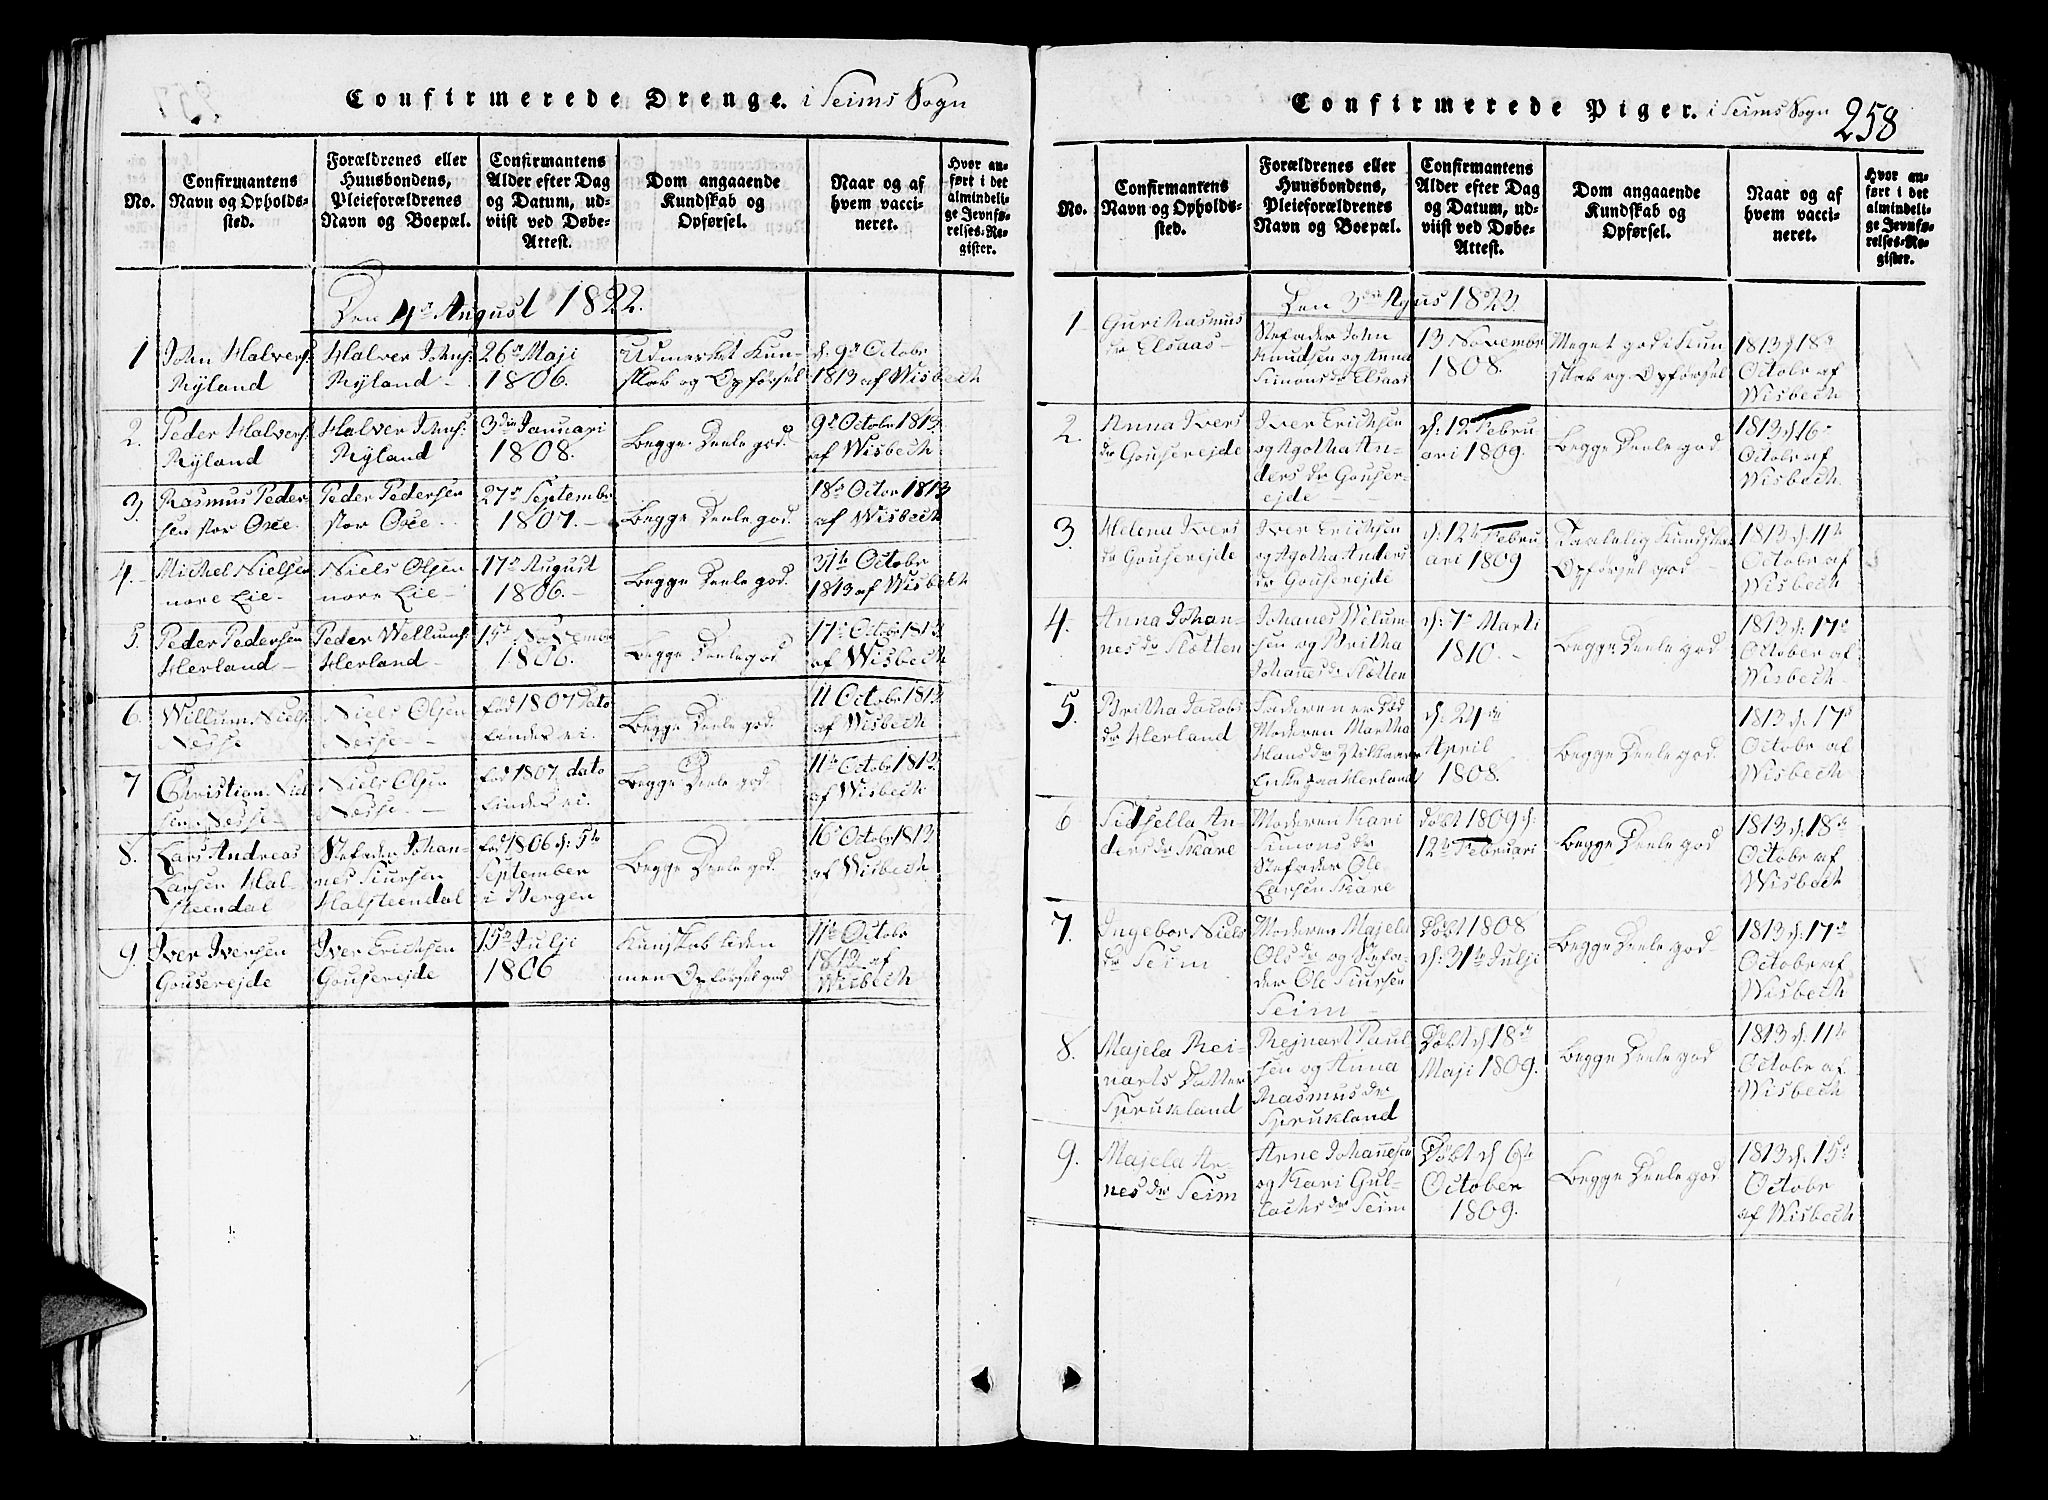 Confirmerede Drenge. i Seims Sogn
No.
Confirmantens
Navn og Opholds-
sted.
Forældrenes eller
Huusbondens,
Pleieforældrenes
Navn og Boepæl.
Confirmantens
Alder efter Dag
og Datum, ud-
viist ved Døbe-
Attest.
Dom angaaende
Kundskab og
Opførsel.
Naar og af
hvem vacci-
neret.
Hvor an-
ført i det
almindeli-
ge Jevnfø-
relses-Re-
gister.
Den 4de August 1822.
1
John Halvers:
Ryland
Halver Johns:
Ryland
26de Maji
1806.
Udmerket Kun-
skab og Opførsel
d. 9de Octobr
1813 af Wisbech
2.
Peder Halvers:
Ryland
Halver Johns:
Ryland
3die Januari
1808.
Begge Deele god.
9de Octobr 1813
af Wisbech
3.
Rasmus Peder-
sen stor Osee.
Peder Pedersen
stor Osee.
27de Septembr
1807.
Begge Deele god.
18de Octor 1813
af Wisbech
4.
Michel Nielsen
nore Eie
Niels Olsen
nore Eie
17de August
1806.
Begge Deele god.
31te Octobr
1813 af Wisbech
5.
Peder Pedersen
Herland
Peder Wellums:
Herland
15de Novembr
1806.
Begge Deele god
17de Octobr 1813
af Wisbech
6.
Willum Niels:
Nesse
Niels Olsen
Nesse
fød 1807 Dato
findes ei.
Begge Deele god
11 Octobr 1813
af Wisbech
7
Christian Niel-
sen Nesse
Niels Olsen
Nesse
fød 1807, dato
findes ei.
Begge Deele god
11te Octobr 1813
af Wisbech
8.
Lars Andreas
Larsen Hal-
steendal
Stefader Johan-
nes Siursen
Halsteendal
fød 1806 d: 5te
September
i Bergen
Begge Deele god.
16de Octobr 1813
af Wisbech
9.
Iver Iversen
Gouserejde
Iver Erichsen
Gouserejde
15de Julji
1806
Kunskab liden
men Opførsel god
11te Octobr
1813 af
Wisbech
Confirmerede Piger. i Seims Sogn
258
No.
Confirmantens
Navn og Opholds-
sted.
Forældrenes eller
Huusbondens,
Pleieforældrenes
Navn og Boepæl.
Confirmantens
Alder efter Dag
og Datum, ud-
viist ved Døbe-
Attest.
Dom angaaende
Kundskab og
Opførsel.
Naar og af
hvem vacci-
neret.
Hvor an-
ført i det
almindeli-
ge Jevnfø-
relses-Re-
gister.
Den 3die Agus 1823.
1
Guri Rasmus
dr Elsaas
Stefader John
Knudsen og Anna
Simonsdr Elsaas
13 Novembr
1808.
Meget god i Kun
skab og Opførsel
1813 d 18de
Octobr af
Wisbech
2.
Anna Ivers
dr Gouserejde
Iver Erichsen
og Agotha An-
ders dr Gouser-
ejde
d: 12te Febru
ari 1809.
Begge Deele god
1813 d 16de
Octobr af
Wisbech.
3.
Helena Ivers
dr Gouserejde
Iver Erichsen
og Agotha Anders
dr Gouserejde
d: 12te Febru
ari 1809
Taalelig Kundskab
Opførsel god
1813 d. 11te
October af
Wisbech
4.
Anna Johan-
nes dr Fløtten
Johanes Welum-
sen og Britha
Johannesdr Fløtten
d: 7de Marti
1810.
Begge Deele god
1813 d. 17de
October af
Wisbech
5.
Britha Jacobs
dr Herland
Faderen er død
Moderen Martha
Hans dr
Enke paa Herland
d: 24de
April
1808.
Begge Deele god.
1813 d. 17de
Octobr af
Wisbech
6
Sidsella An-
ders dr Skare
Moderen Kari
Simons dr
Stefader Ole
Larsen Skare
døbt 1809 d.
12te Februari
Begge Deele god
1813 d. 18de
Octobr af
Wisbech
7.
Ingebor Niels
dr Seim
Moderen Majela
Ols dr og Stefa-
der Ole Siursen
Seim
Døbt 1808
d: 31te Julji
Begge Deele god
1813 d: 17de
Octobr af
Wisbech
8.
Majela Rei-
narts Datter
Spjrukland
Rejnart Paul
sen og Anna
Rasmus dr
Spjrukland
Døbt d 18de
Maji 1809.
Begge Deele god
1813 d. 11te
October af
Wisbech
9.
Majela Ar-
nes dr Seim
Arne Johannesen
og Kari Gul-
lachs dr Seim
Døbt d 6te
October
1809.
Begge Deele god
1813 d. 15de
Octobr
af Wisbech